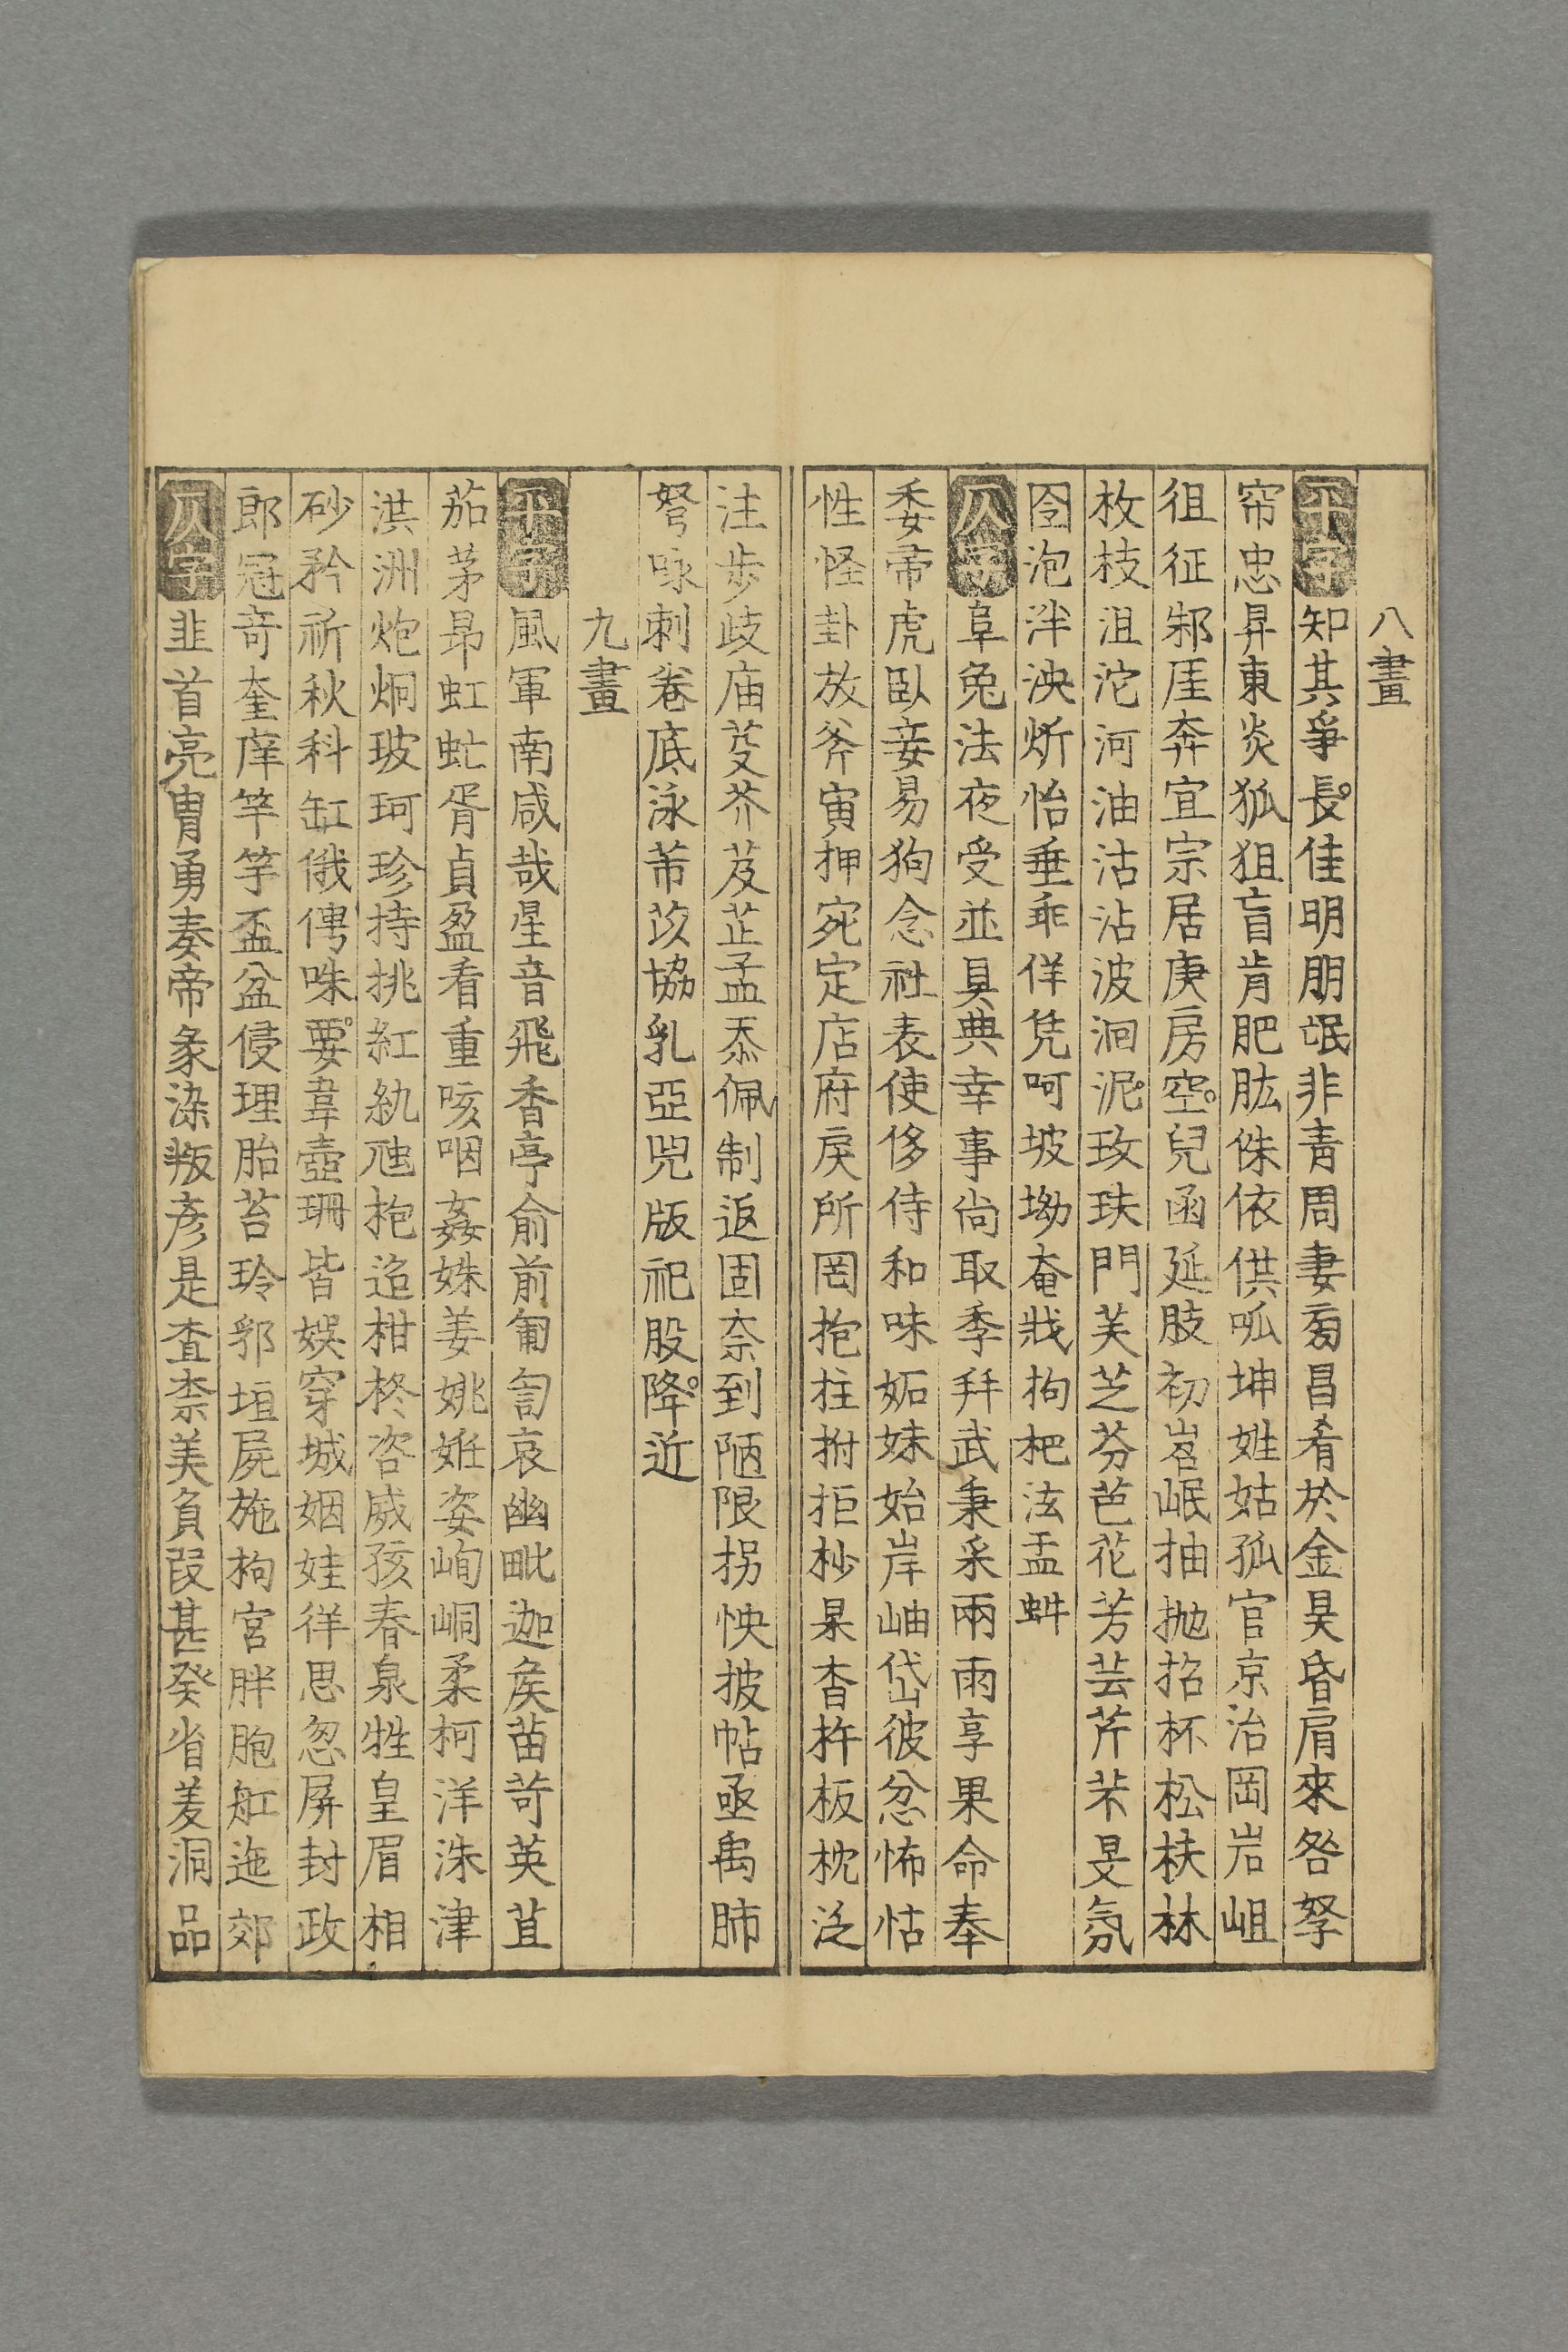 八畫
平字知其爭長佳明朋氓非青周妻昌肴於金昊昏肩來咎孥
帘忠昇東炎狐狙盲肯肥肱侏依供呱坤姓姑孤官京治岡岩岨
徂征邾厓奔宜宗居庚房空兒函延肢初岧岷抽拋招杯松扶林
枚枝沮沱河油沽沾波洄泥玫玞門芙芝芬芭花芳芸芹芣旻氛
囹泡泮泱炘怡垂乖佯凭呵坡坳奄戕拘杷泫盂蚪
仄字阜兔法夜受並具典幸事尚取季拜武秉采兩雨享果命奉
委帚虎臥妾易狗念社表使侈侍和味妬妹始岸岫岱彼忿怖怙
性怪卦放斧寅押宛定店府戾所罔抱拄拊拒杪杲杳杵板枕泛
注步歧庙芟芥芨芷孟忝佩制返固奈到陋限拐怏披帖亟禹肺
弩咏刺卷底泳芾苡協乳亞兕版祀股降近
九畫
平字風軍南咸哉星音飛香亭俞前匍訇哀幽毗迦矦苗苛英苴
茄茅昴虹虻胥貞盈看重咳咽姦姝姜姚姙姿峋峒柔柯洋洙津
洪洲炮炯玻珂珍持挑紅紈迱枹迨柑柊咨威孩春泉牲皇眉相
砂矜祈秋科缸俄俜咮要韋壺珊皆娛穿城姻娃徉思忽屏封政
郎冠竒奎庠竿竽盃盆侵埋胎苔玲郛垣屍施枸宮胖胞舡迤郊
仄字韭首亮冑勇奏帝彖染叛彥是查柰美負段甚癸省羑洞品